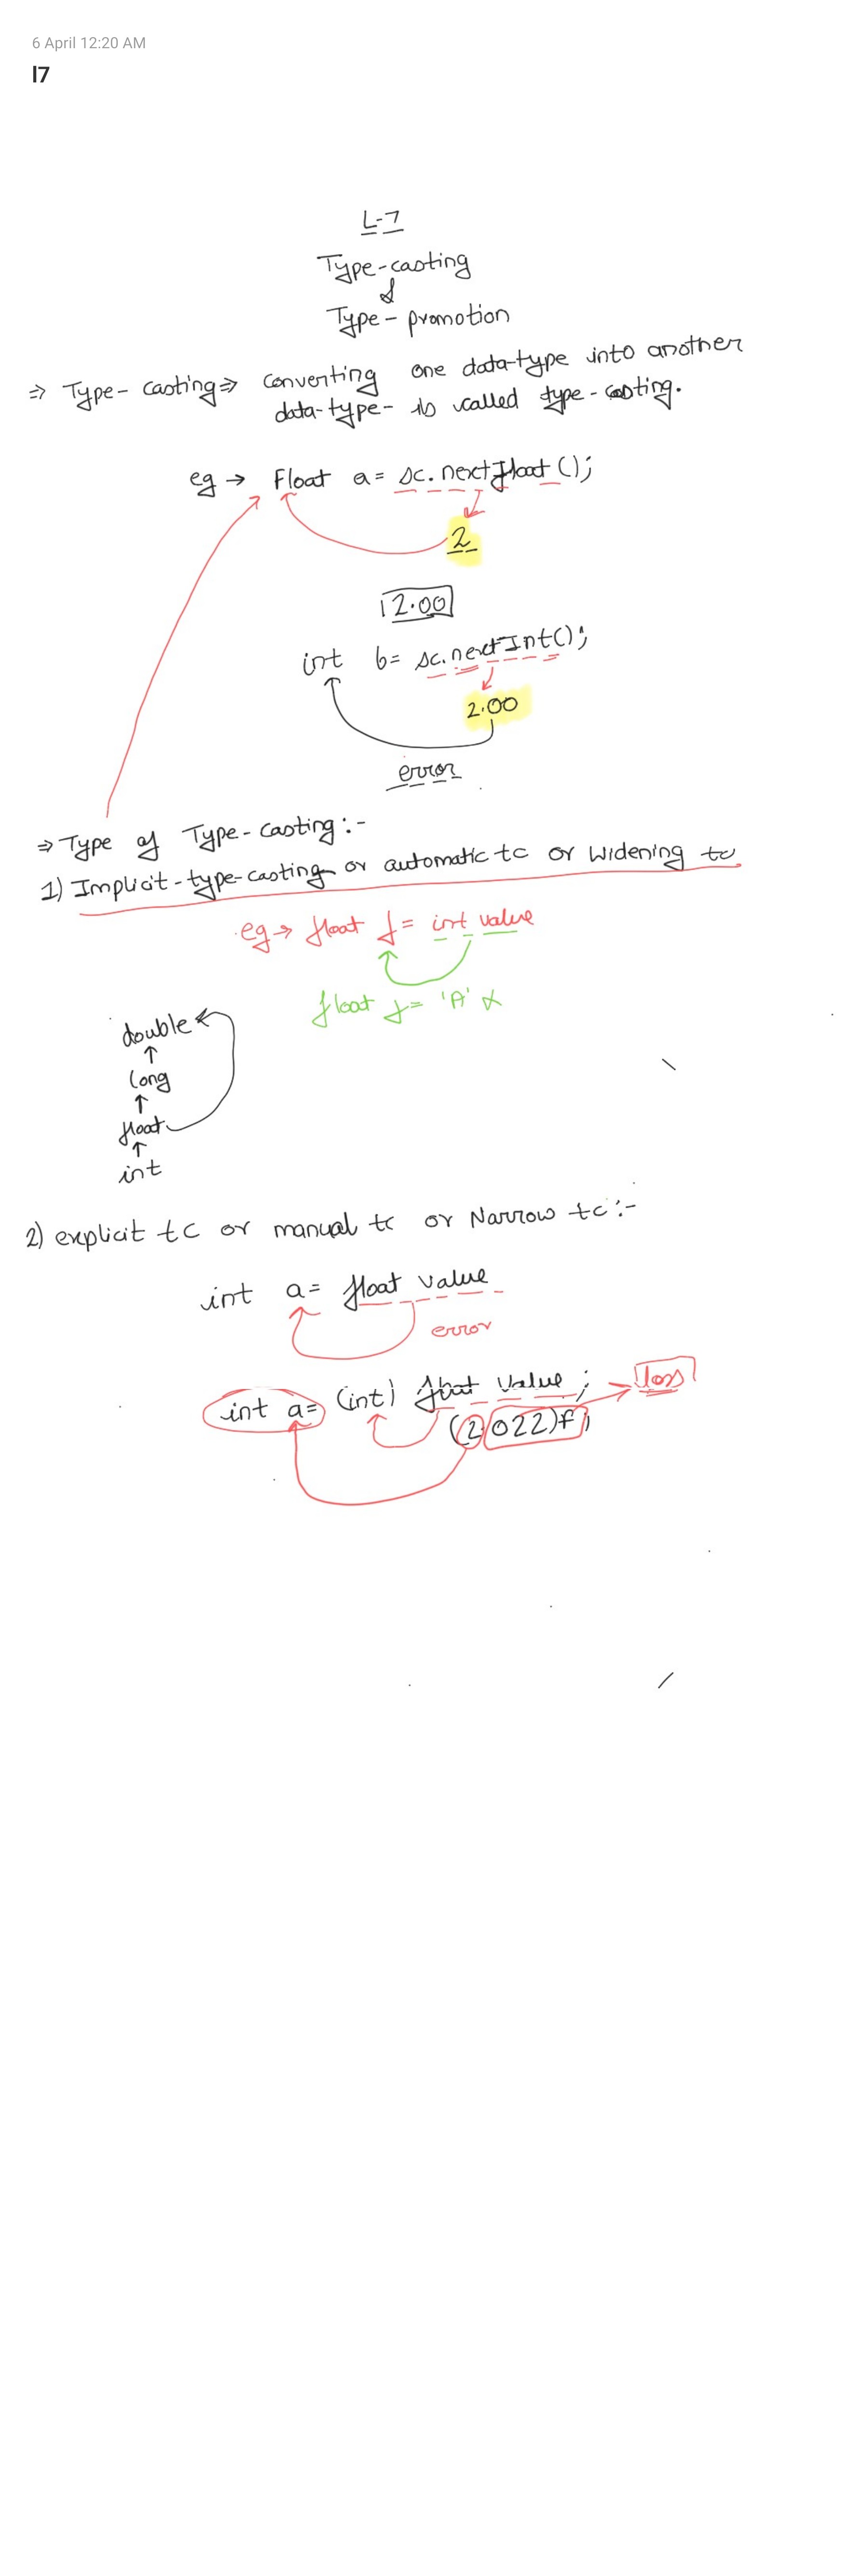 6 April 12:20 AM
l7
L-7
Type-casting
&
Type - promotion
⇒ Type - casting ⇒ converting one data-type into another
data-type - is called type - casting.
eg → Float a = sc.nextfloat();
2
2.00
int b = sc.nextInt();
2.00
error
⇒ Type of Type - casting :-
1) Implicit - type-casting or automatic tc or widening tc
eg → float f = int value
float f = 'A' x
double
↑
long
↑
float
↑
int
2) explicit tc or manual tc or Narrow tc :-
int a = float value
error
int a = (int) float value ; → loss
(2.022)f;